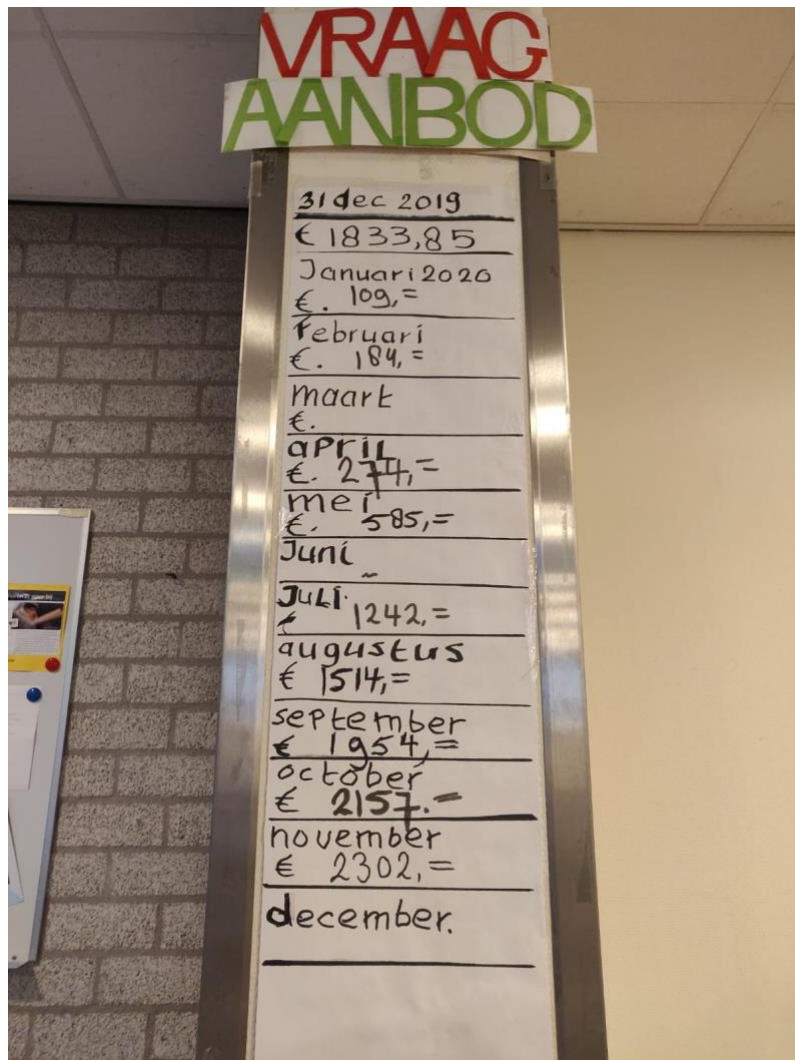 VRAAG
AANBOD
31 dec 2019
€ 1833,85
Januari 2020
€. 109,=
februari
€. 184,=
maart
€.
april
€. 274,=
mei
€. 585,=
Juni
Juli.
€ 1242,=
augustus
€ 1514,=
september
€ 1954,=
october
€ 2157.=
november
€ 2302,=
december.